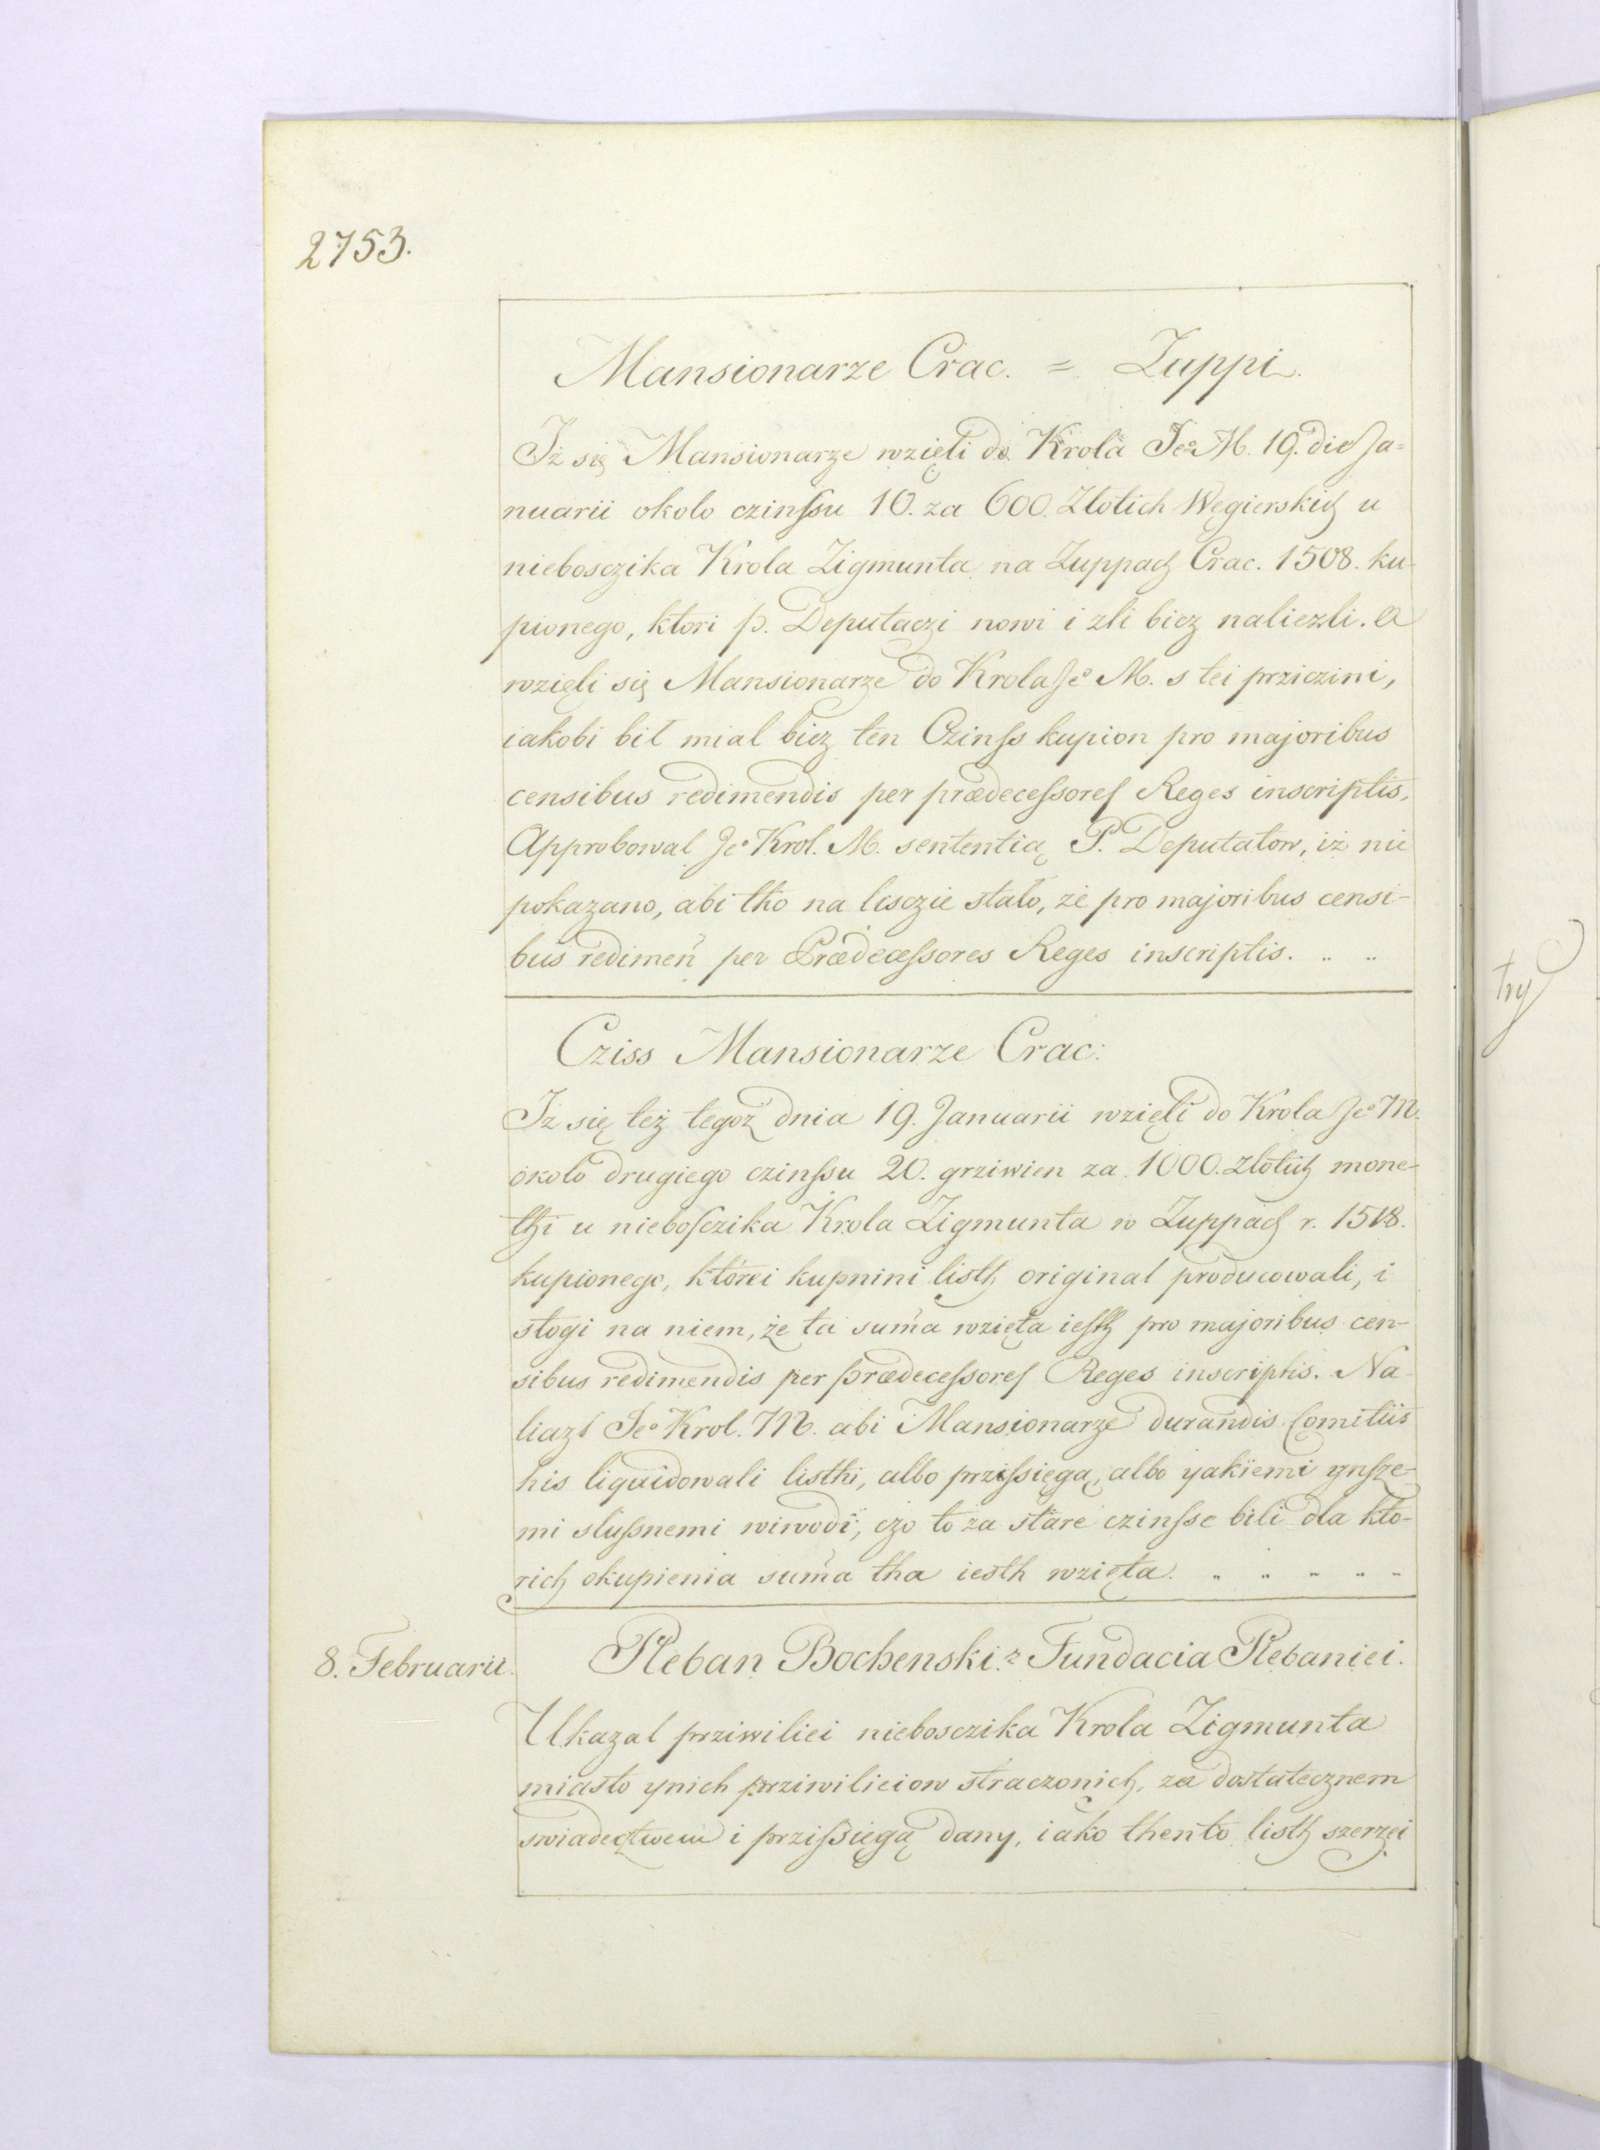 2753.
Mansionarze Crac. = Zuppi.
Iż się Mansionarze wzięli do Krola Jeo M. 19. die Ja=
nuarii okolo czinſsu 10. za 600. Zlotich Węgierskich u
niebosczika Krola Zigmunta na Zuppach Crac. 1508. ku-
pionego, ktori p. Deputaczi nowi i zli bicz naliezli. A
wzięli się Mansionarze do Krola Jeo M. s tei prziczini,
iakobi bil mial bicz ten Czinſs kupion pro majoribus
censibus redimendis per prædeceſsoreſ Reges inscriptis,
Approbowal Jeo Krol. M. sententią P. Deputatow, iż nie
pokazano, abi tho na lisczie stalo, że pro majoribus censi-
bus redimeń per Prædeceſsores Reges inscriptis. .. ..
Cziss Mansionarze Crac:
Iż się też tegoż dnia 19. Januarii wzięli do Krola Jeo M.
okolo drugiego czinſsu 20. grziwien za 1000. zlotich mone-
thi u nieboſczika Krola Zigmunta w Zuppach r. 1518.
kupionego, którei kupnini listh original producowali, i
stogi na niem, że ta sum̄a wzięta ieſth pro majoribus cen-
sibus redimendis per prædeceſsoreſ Reges inscriptis. Na-
liazl Jeo Krol. M. abi Mansionarze durandis Comitiis
his liquidowali listhi, albo prziſsięgą, albo yakiemi ynſze-
mi sluſsnemi wiwodi, czo to za stare czinſse bili dla kto-
rich okupienia sum̄a tha iesth wzięta. .. .. .. .. ..
8. Februarii.
Pleban Bochenski. = Fundacia Plebaniei.
Ukazal prziwiliei niebosczika Krola Zigmunta
miasto ynich prziwilieiow straczonich, za dostatecznem
swiadecztwem i prziſsięgą dany, iako thento listh szerzei
try